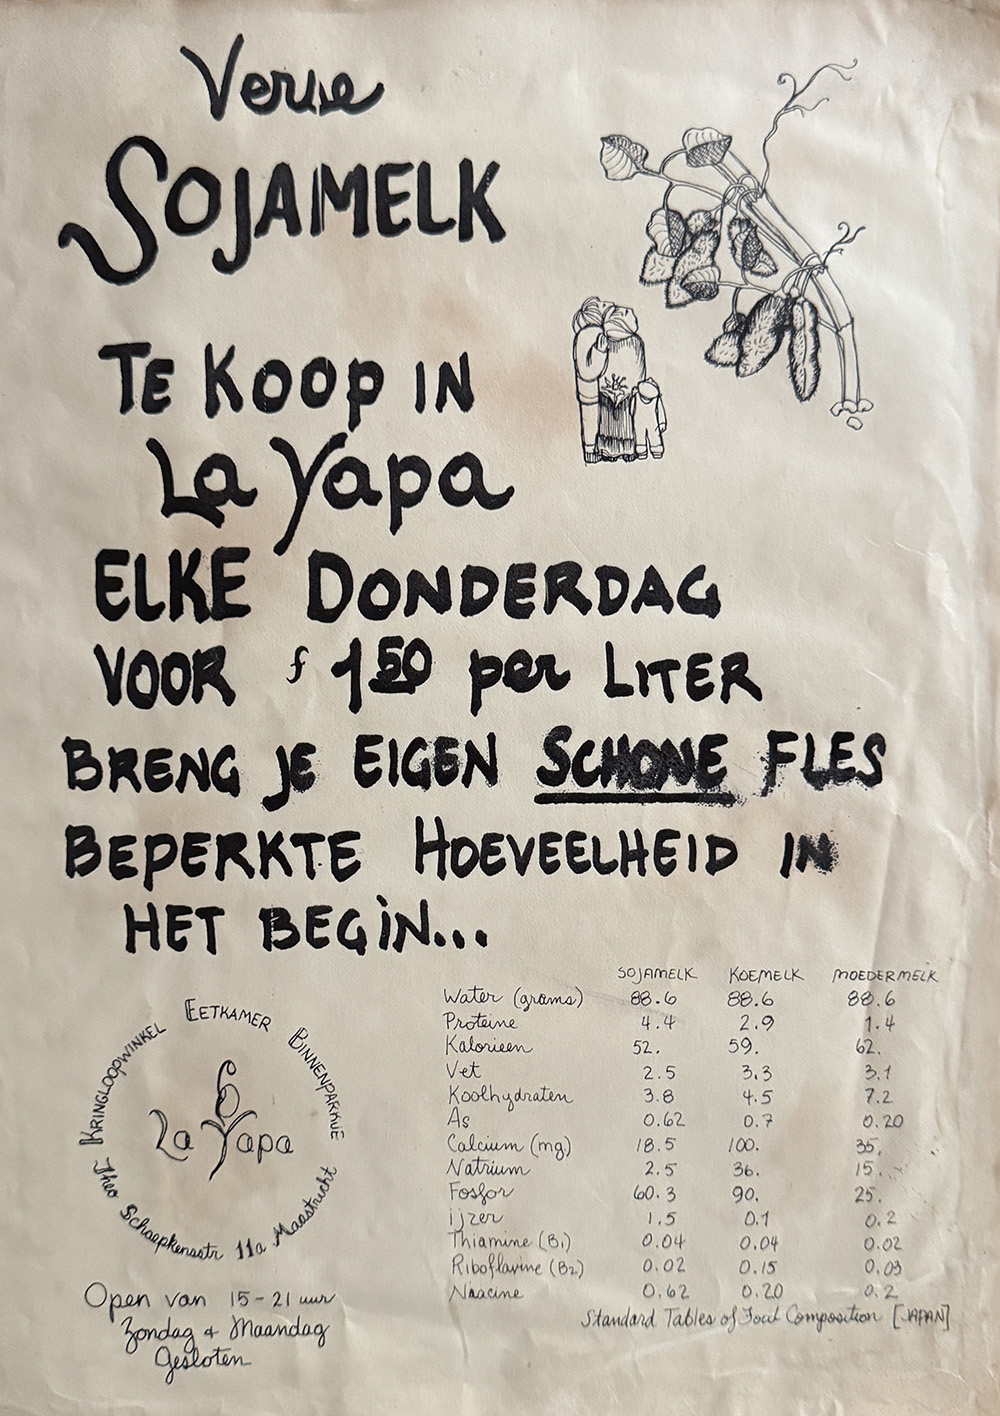 Verse
SOJAMELK
TE KOOP IN
La Yapa
ELKE DONDERDAG
VOOR f 1 50 per LITER
BRENG JE EIGEN SCHONE FLES
BEPERKTE HOEVEELHEID IN
HET BEGIN...
SOJAMELK KOEMELK MOEDERMELK
Water (grams) 88.6 88.6 88.6
Proteine 4.4 2.9 1.4
Kalorieen 52. 59. 62.
Vet 2.5 3.3 3.1
Koolhydraten 3.8 4.5 7.2
As 0.62 0.7 0.20
Calcium (mg) 18.5 100. 35.
Natrium 2.5 36. 15.
Fosfor 60.3 90. 25.
ijzer 1.5 0.1 0.2
Thiamine (B1) 0.04 0.04 0.02
Riboflavine (B2) 0.02 0.15 0.03
Niacine 0.62 0.20 0.2
Standard Tables of Food Composition [JAPAN]
KRINGLOOPWINKEL EETKAMER BINNENPARKUE
La Yapa
Theo Schaepkensstr 11a Maastricht
Open van 15-21 uur
Zondag + Maandag
Gesloten